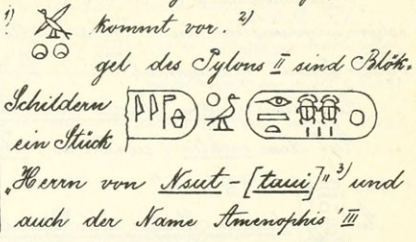 1) kommt vor. 2)
gel des Pylons II sind Blök-
Schildern
ein Stück
„Herrn von Nsut-[taui]" 3) und
auch der Name Amenophis' III